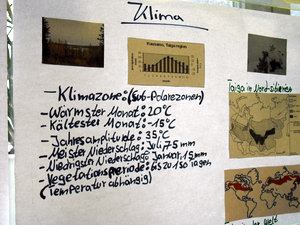 Klima
- Klimazone: (sub-Polarezonen)
- Wärmster Monat: 20°C
- Kältester Monat: -15°C
- Jahresamplitude: 35°C
- Meister Niederschlag: Juli, 75 mm
- Niedrigster Niederschlag: Januar, 15 mm
- Vegetationsperiode: bis zu 150 Tagen
(Temperatur abhängig)
Taiga in Nord-
der Welt